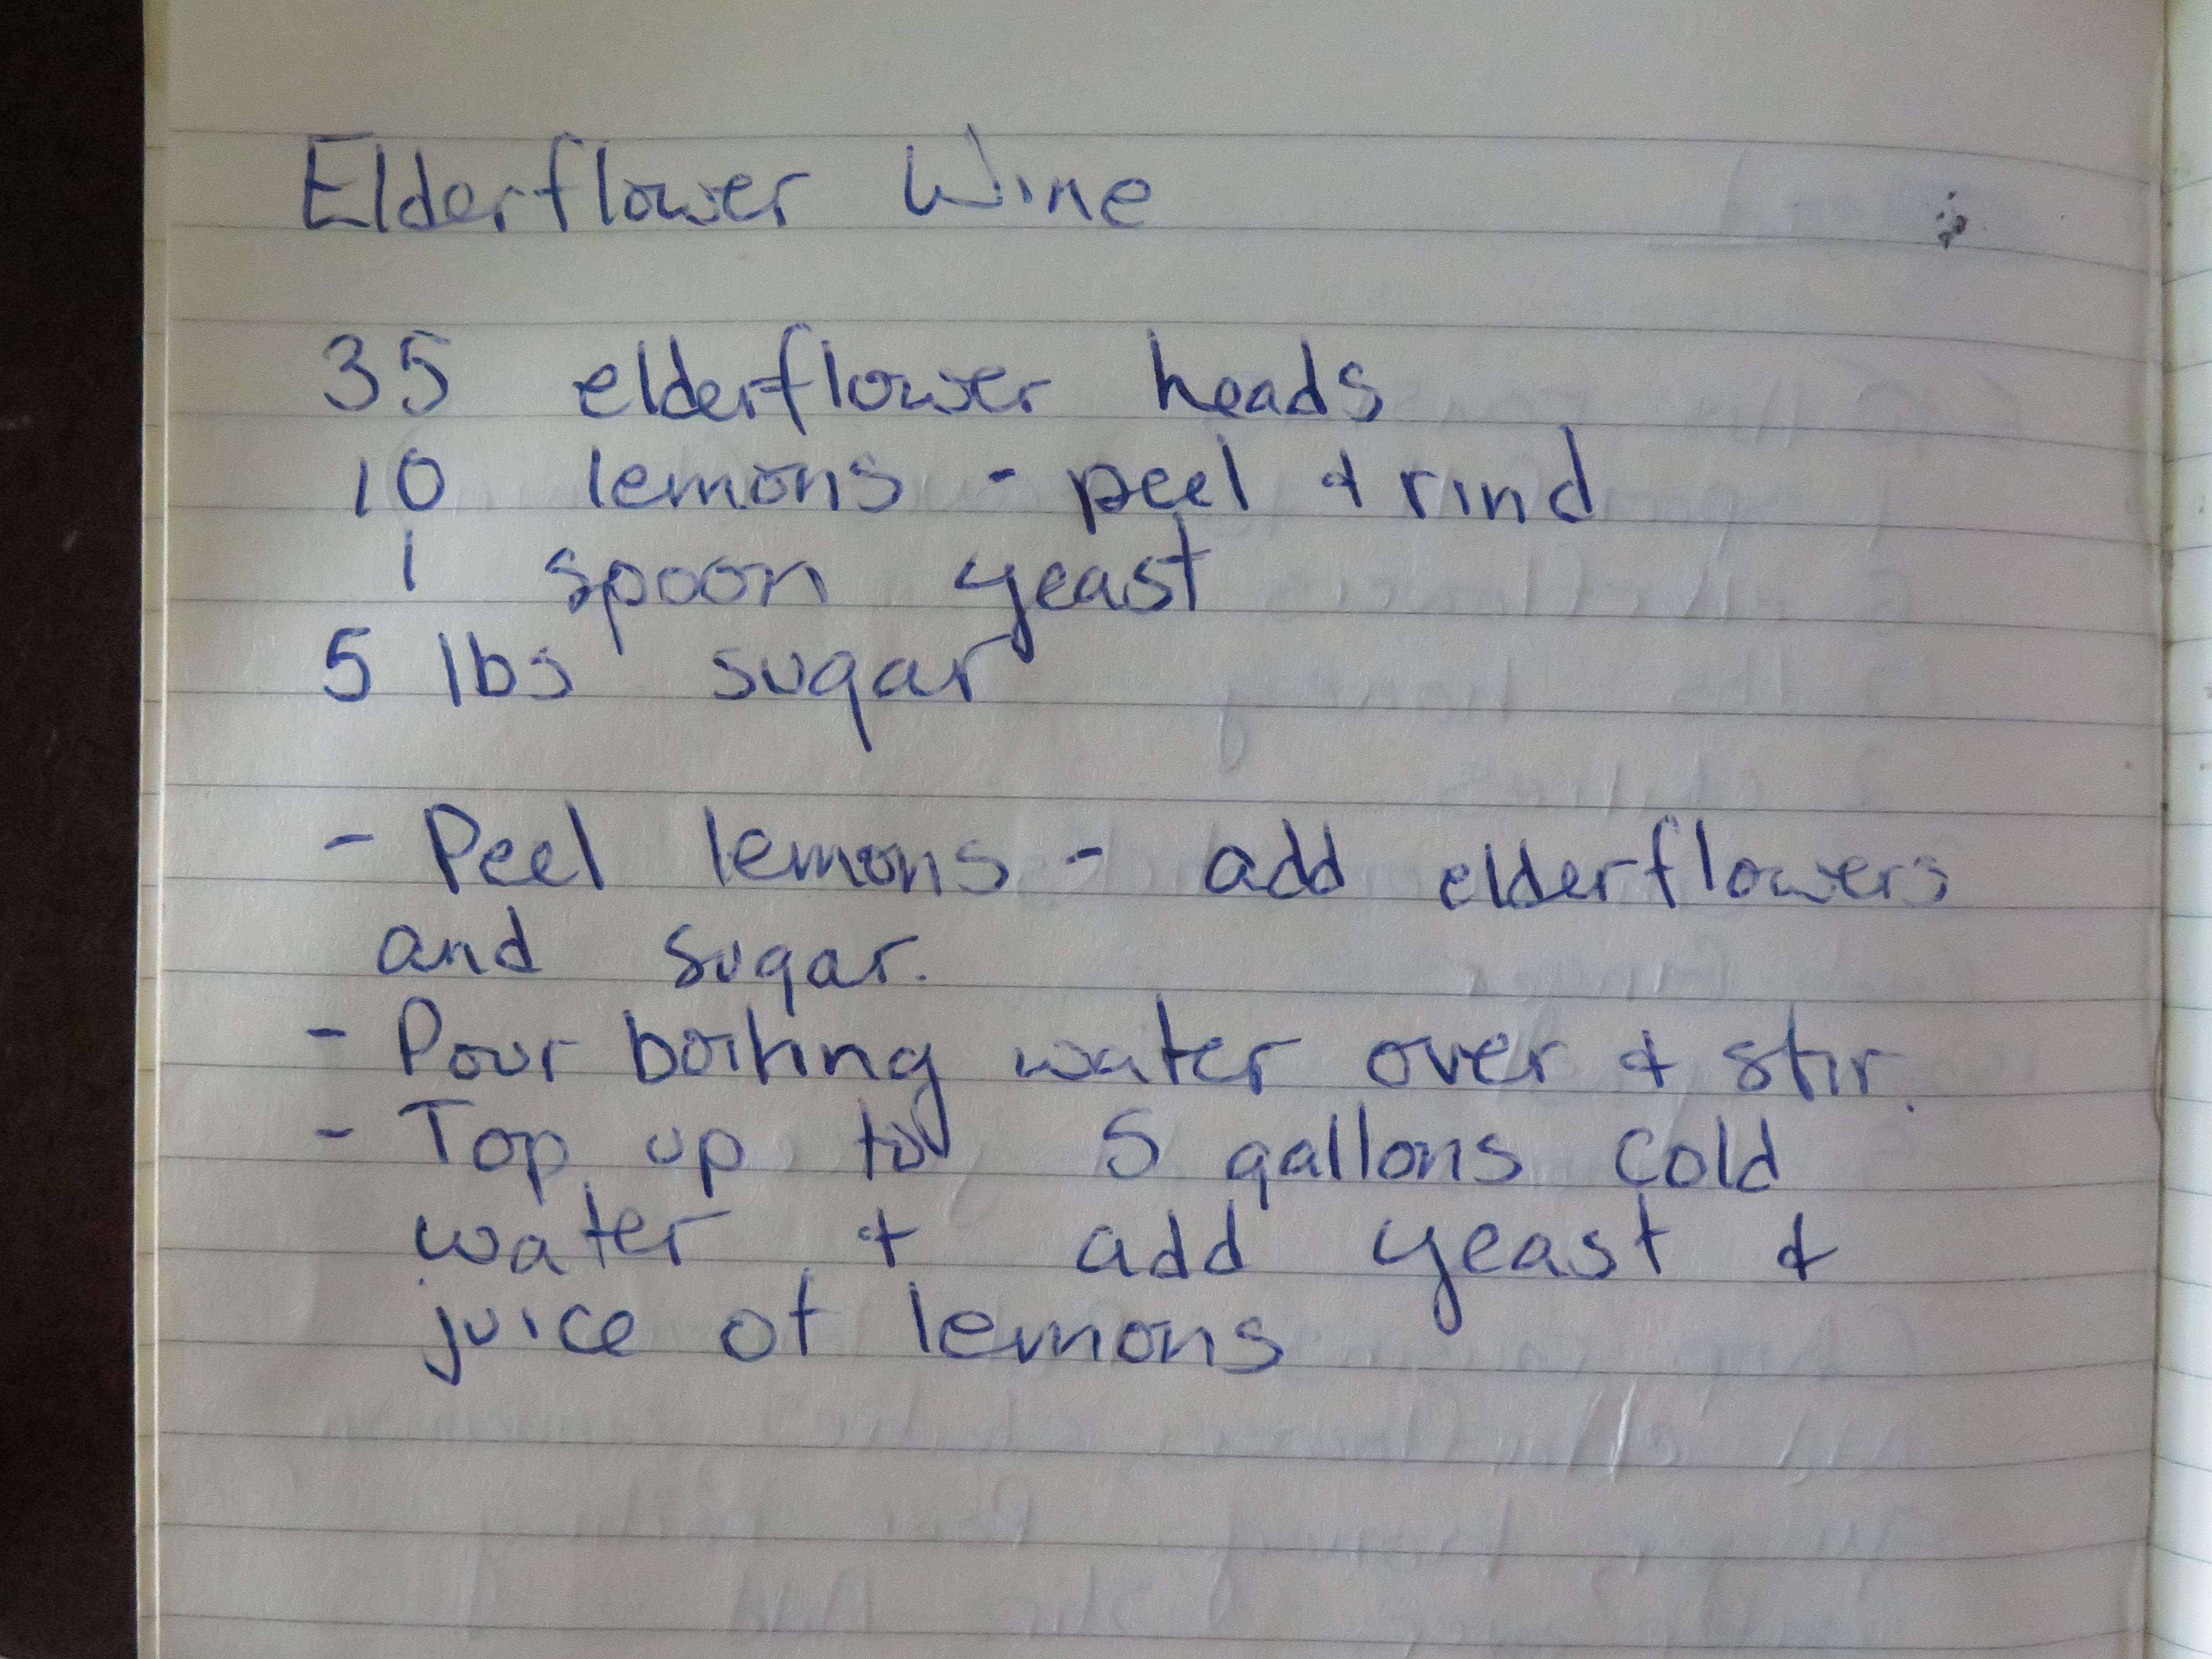 Elderflower Wine
35 elderflower heads
10 lemons - peel & rind
1 spoon yeast
5 lbs sugar
- Peel lemons - add elderflowers
and sugar.
- Pour boiling water over & stir.
- Top up to 5 gallons cold
water & add yeast &
juice of lemons